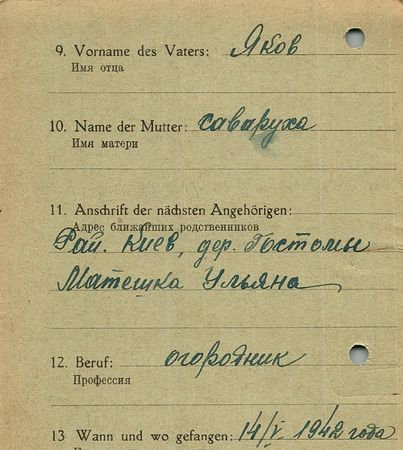 9. Vorname des Vaters: Яков
Имя отца
10. Name der Mutter: саваруха
Имя матери
11. Anschrift der nächsten Angehörigen:
Адрес ближайших родственников
Рай. Киев, дер. Гостомы
Матешка Ульяна
12. Beruf: огородник
Профессия
13 Wann und wo gefangen: 14/V 1942 года